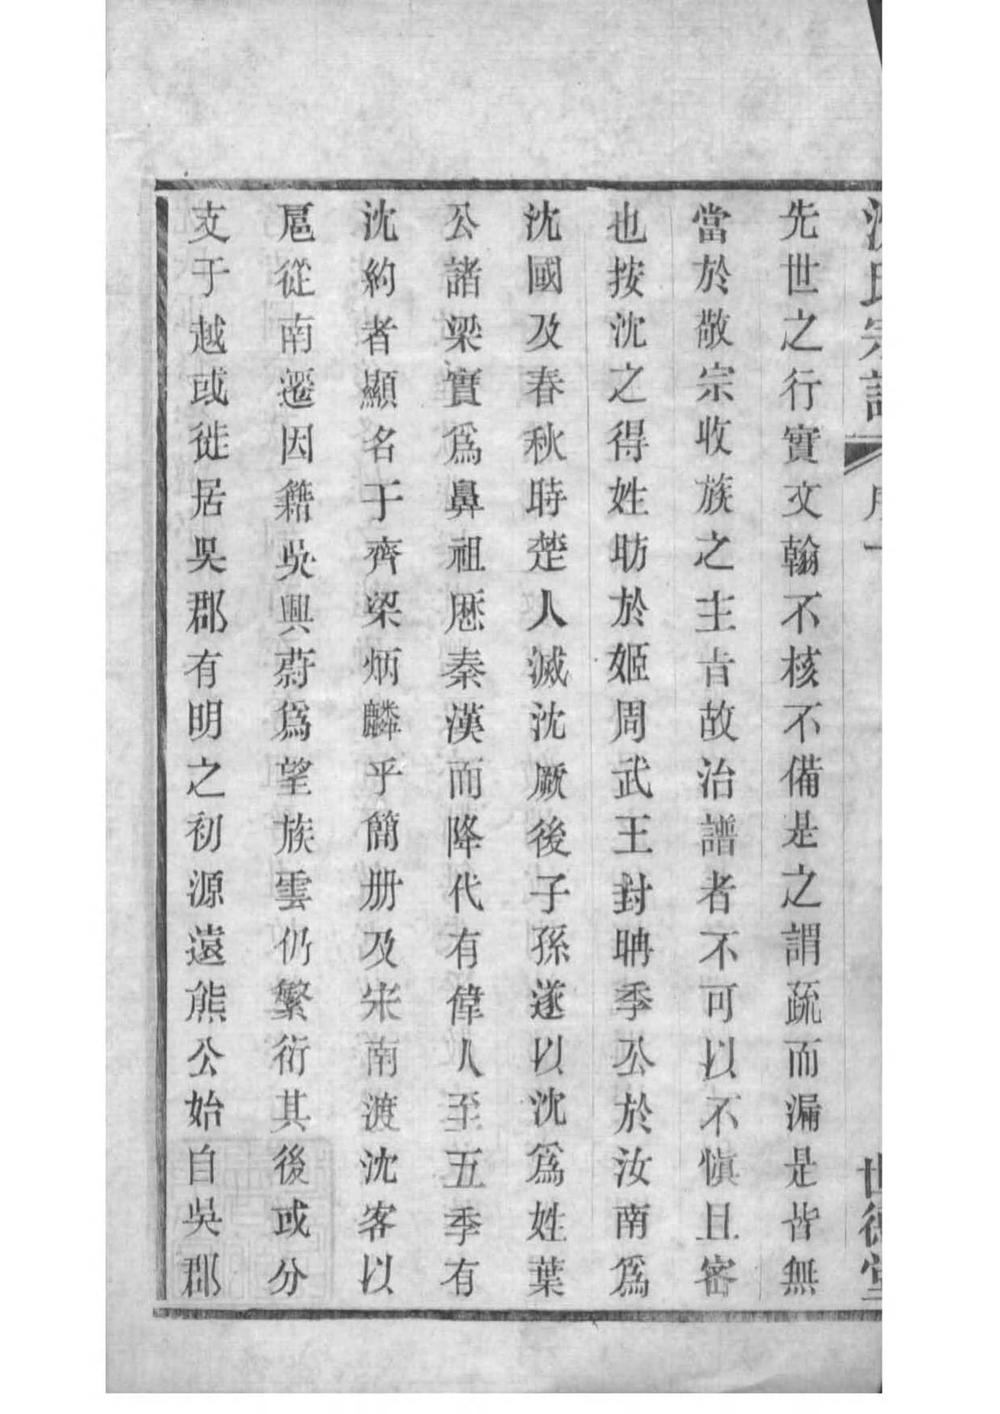 沈氏宗譜
序
一
世德堂
先世之行實文翰不核不備是之謂疏而漏是皆無
當於敬宗收族之主旨故治譜者不可以不愼且審
也按沈之得姓昉於姬周武王封聃季公於汝南爲
沈國及春秋時楚人滅沈厥後子孫遂以沈爲姓葉
公諸梁實爲鼻祖厯秦漢而降代有偉人至五季有
沈約者顯名于齊梁炳麟乎簡册及宋南渡沈客以
扈從南遷因籍吳興蔚爲望族雲仍繁衍其後或分
支于越或徙居吳郡有明之初源遠熊公始自吳郡